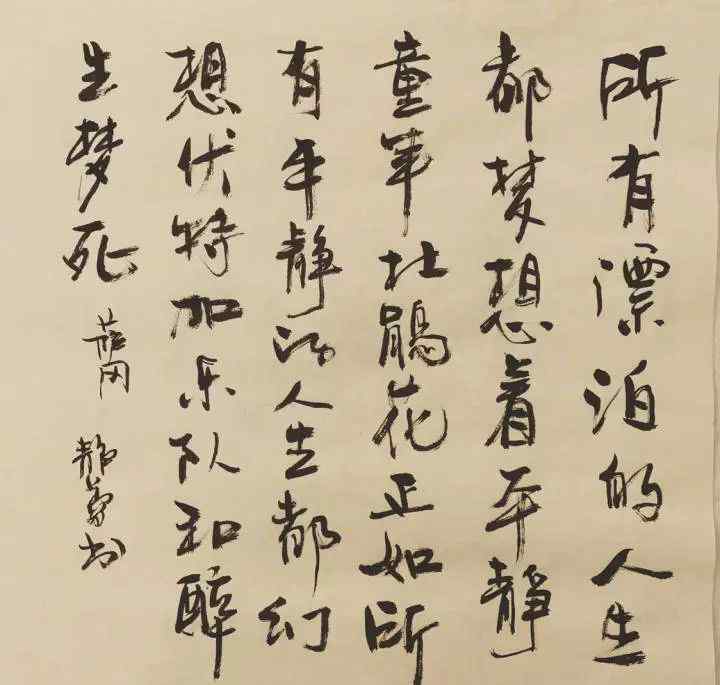 所有漂泊的人生
都梦想着平静
童年杜鹃花正如所
有平静的人生都幻
想伏特加乐队和醉
生梦死
静易书